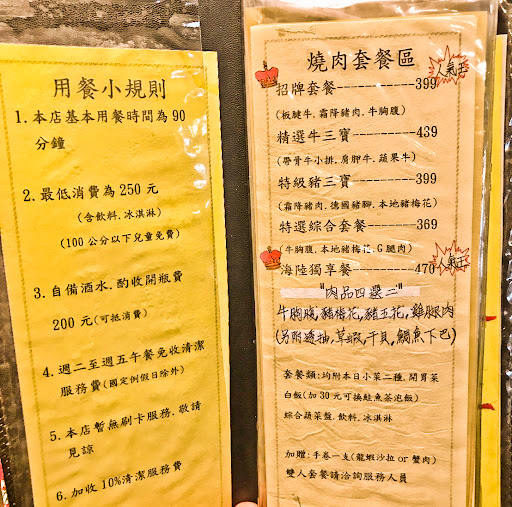 用餐小規則
1. 本店基本用餐時間為 90
分鐘
2. 最低消費為 250 元
(含飲料.冰淇淋)
(100 公分以下兒童免費)
3. 自備酒水.酌收開瓶費
200 元(可抵消費)
4. 週二至週五午餐免收清潔
服務費(國定例假日除外)
5. 本店暫無刷卡服務.敬請
見諒
6. 加收 10%清潔服務費
燒肉套餐區
人氣王
招牌套餐-----------399
(板腱牛.霜降豬肉.牛胸腹)
精選牛三寶----------439
(帶骨牛小排.肩胛牛.蔬果牛)
特級豬三寶----------399
(霜降豬肉.德國豬腳.本地豬梅花)
特選綜合套餐--------369
(牛胸腹.本地豬梅花.G腿肉)
人氣王
海陸獨享餐---------470
"肉品四選二"
牛胸腹,豬梅花,豬五花,雞腿肉
(另附透抽,草蝦,干貝,鯛魚下巴)
套餐類:均附本日小菜二種.開胃菜
白飯(加 30 元可換鮭魚茶泡飯)
綜合蔬菜盤.飲料.冰淇淋
加贈:手卷一支(龍蝦沙拉 or 蟹肉)
雙人套餐請洽詢服務人員